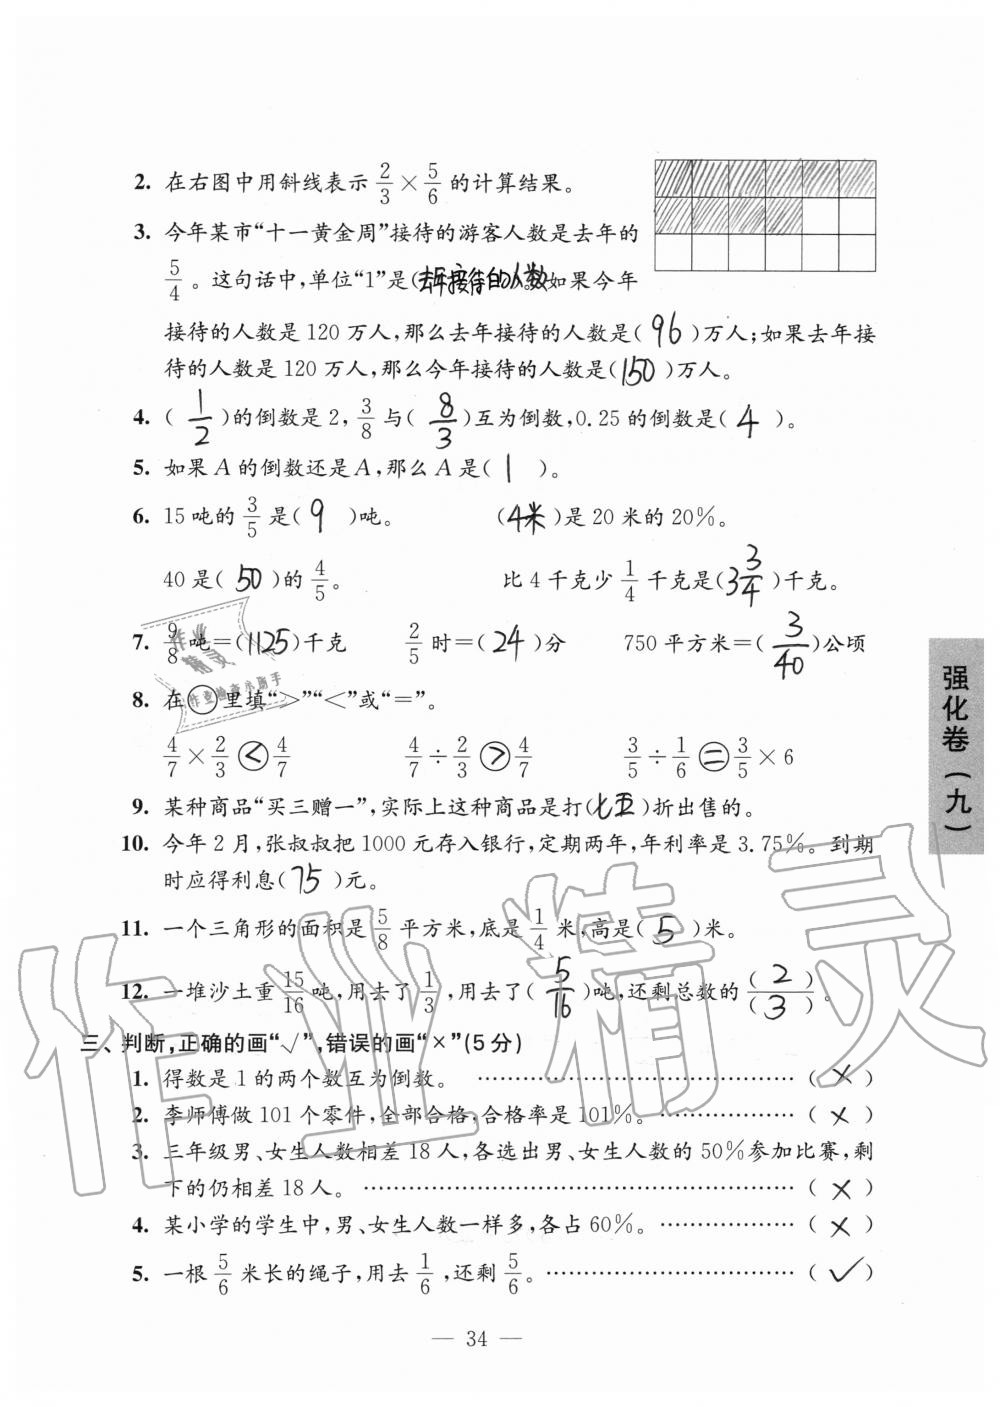 2. 在右图中用斜线表示 2/3 × 5/6 的计算结果。
3. 今年某市“十一黄金周”接待的游客人数是去年的
5/4。这句话中,单位“1”是(去年接待的人数)。如果今年
接待的人数是 120 万人,那么去年接待的人数是( 96 )万人;如果去年接
待的人数是 120 万人,那么今年接待的人数是(150)万人。
4. ( 1/2 )的倒数是 2, 3/8 与( 8/3 )互为倒数,0.25 的倒数是( 4 )。
5. 如果 A 的倒数还是 A,那么 A 是( 1 )。
6. 15 吨的 3/5 是( 9 )吨。 (4米)是 20 米的 20%。
40 是( 50 )的 4/5。 比 4 千克少 1/4 千克是(3 3/4)千克。
7. 9/8 吨=(1125)千克 2/5 时=( 24 )分 750 平方米=( 3/40 )公顷
8. 在○里填“>”“<”或“=”。
4/7 × 2/3 < 4/7 4/7 ÷ 2/3 > 4/7 3/5 ÷ 1/6 = 3/5 × 6
9. 某种商品“买三赠一”,实际上这种商品是打(七五)折出售的。
10. 今年 2 月,张叔叔把 1000 元存入银行,定期两年,年利率是 3.75%。到期
时应得利息( 75 )元。
11. 一个三角形的面积是 5/8 平方米,底是 1/4 米,高是( 5 )米。
12. 一堆沙土重 15/16 吨,用去了 1/3,用去了( 5/16 )吨,还剩总数的 (2)/(3)。
三、判断,正确的画“√”,错误的画“×”(5 分)
1. 得数是 1 的两个数互为倒数。 ………………………………… ( × )
2. 李师傅做 101 个零件,全部合格,合格率是 101%。 ……………… ( × )
3. 三年级男、女生人数相差 18 人,各选出男、女生人数的 50%参加比赛,剩
下的仍相差 18 人。 ………………………………………………… ( × )
4. 某小学的学生中,男、女生人数一样多,各占 60%。 ……………… ( × )
5. 一根 5/6 米长的绳子,用去 1/6,还剩 5/6。 ………………………… ( √ )
— 34 —
强化卷(九)
作业精灵
作业精灵